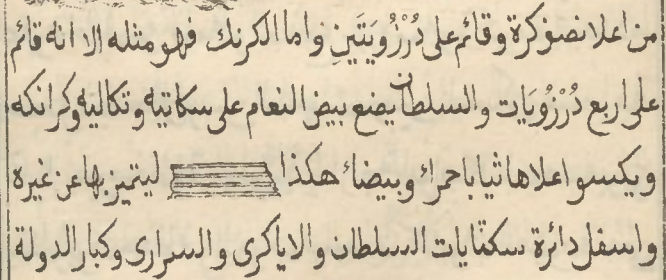 من اعلا نصف كرة وقائم على دُرْزُويَتَينِ واما الكرنك فهو مثله الا انه قائم
على اربع دُرْزُويَات والسلطان يضع بيض النعام على سكاتيه وتكاليه وكرانكه
ويكسوا اعلاها ثيابا حمراء وبيضاء هكذا ليتميز بها عن غيره
واسفل دائرة سكتايات السلطان والاياكرى والسرارى وكبار الدولة